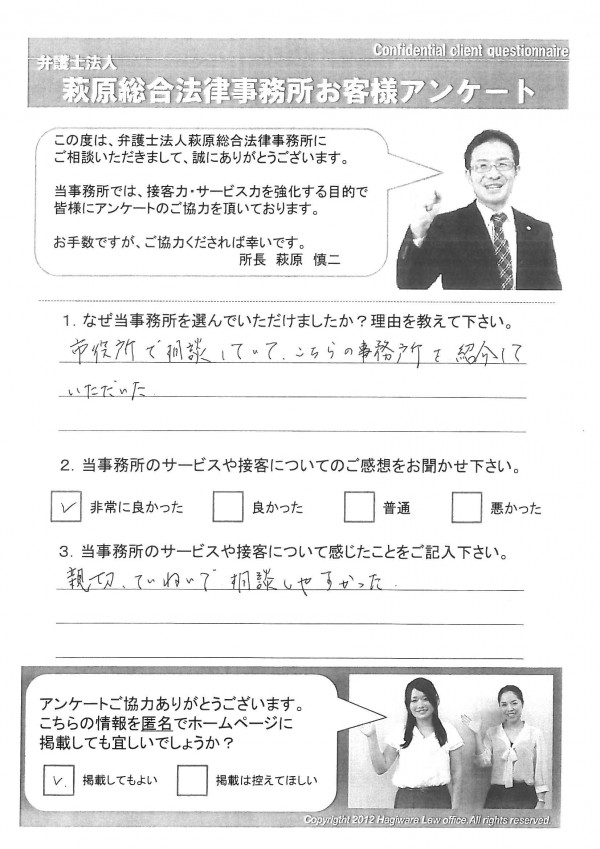 Confidential client questionnaire
弁護士法人
萩原総合法律事務所お客様アンケート
この度は、弁護士法人萩原総合法律事務所に
ご相談いただきまして、誠にありがとうございます。
当事務所では、接客力・サービス力を強化する目的で
皆様にアンケートのご協力を頂いております。
お手数ですが、ご協力くだされば幸いです。
所長 萩原 慎二
1. なぜ当事務所を選んでいただけましたか？理由を教えて下さい。
市役所で相談していて、こちらの事務所を紹介して
いただいた.
2. 当事務所のサービスや接客についてのご感想をお聞かせ下さい。
非常に良かった 良かった 普通 悪かった
3. 当事務所のサービスや接客について感じたことをご記入下さい。
親切、ていねいで相談しやすかった.
アンケートご協力ありがとうございます。
こちらの情報を匿名でホームページに
掲載しても宜しいでしょうか？
掲載してもよい 掲載は控えてほしい
Copyright 2012 Hagiwara Law office.All rights reserved.